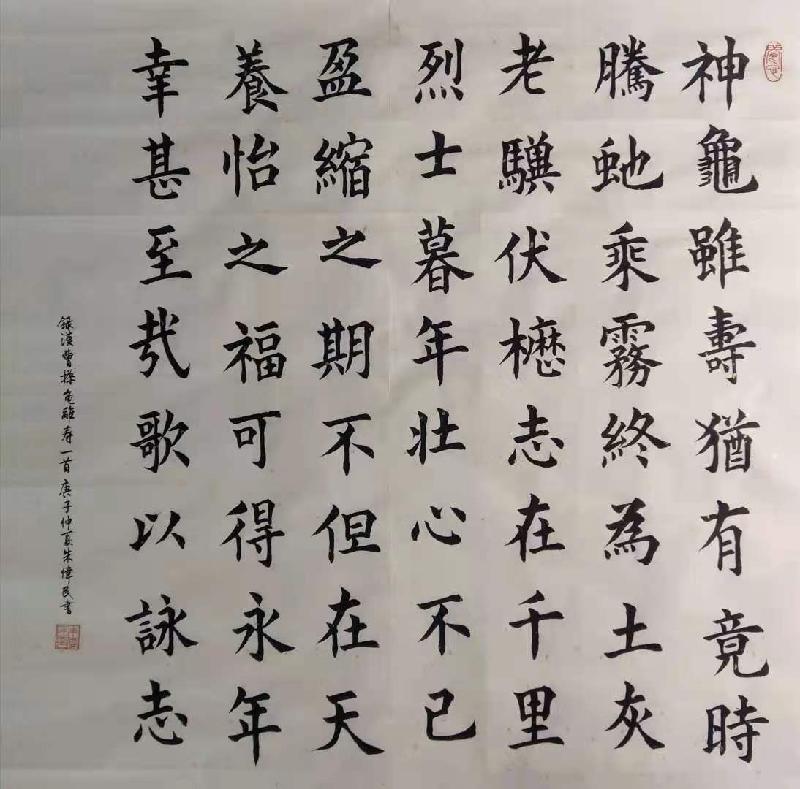 神龜雖壽猶有竟時
騰虵乘霧終為土灰
老驥伏櫪志在千里
烈士暮年壯心不已
盈縮之期不但在天
養怡之福可得永年
幸甚至哉歌以詠志
錄漢曹操龟雖寿一首庚子仲夏朱偉民書